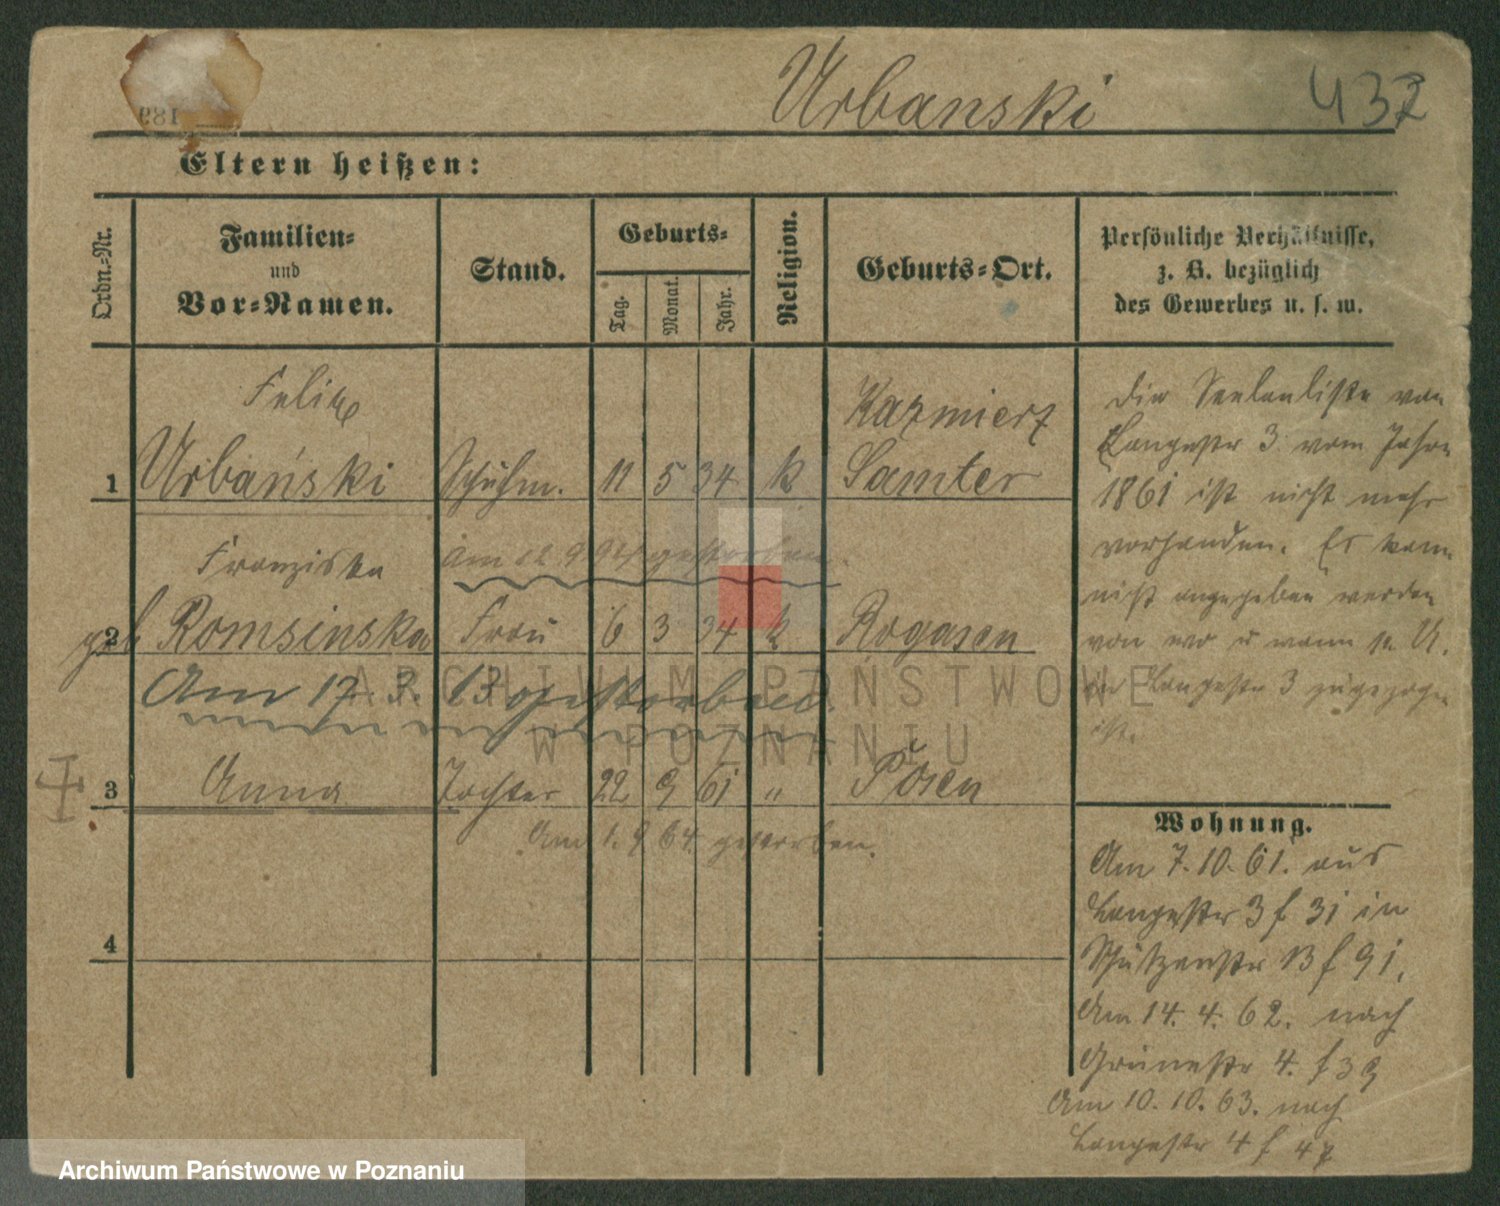 Urbanski 432
189
Eltern heißen:
Ordn.-Nr.
Familien-
und
Vor-Namen.
Stand.
Geburts-
Tag.
Monat.
Jahr.
Religion.
Geburts-Ort.
Persönliche Verhältnisse,
z. B. bezüglich
des Gewerbes u. s. w.
Felix
Kazmierz
1 Urbański Schuhm. 11 5 34 k Samter
Franziska
am 12 9 gestorben.
geb 2 Romsinska Frau 6 3 34 k Rogasen
Am 12. 3. 13 gestorben.
3 Anna Tochter 22 9 61 " Posen
Am 1. 9 64 gestorben.
4
Die Seelenliste von
Langestr 3 vom Jahre
1861 ist nicht mehr
vorhanden. Es kann
nicht angegeben werden
von wo u wann p. U.
in Langestr 3 zugezogen
ist.
Wohnung.
Am 7. 10. 61. aus
Langestr 3 f 31 in
Schützenstr 13 f 91.
Am 14. 4. 62. nach
Grünestr 4. f 39
Am 10. 10. 63. nach
Langestr 4 f 47
ARCHIWUM PAŃSTWOWE
W POZNANIU
Archiwum Państwowe w Poznaniu